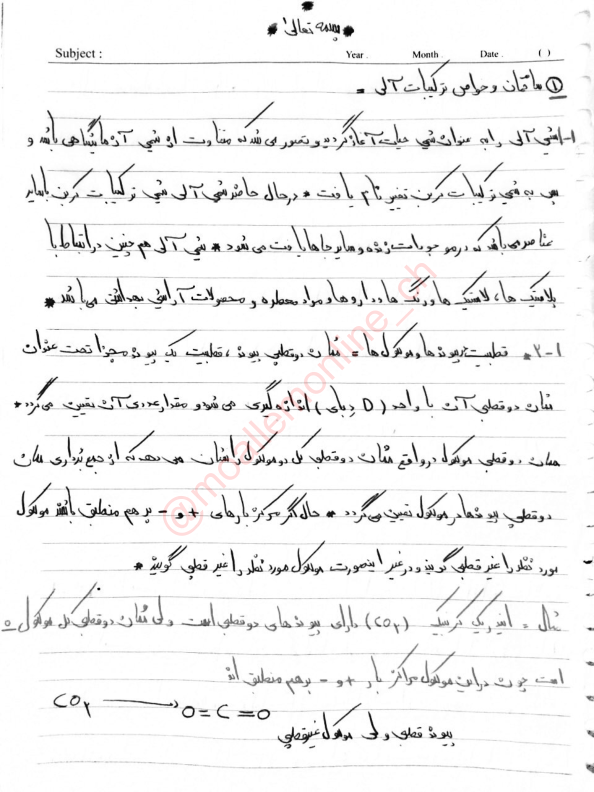 * بسمه تعالی *
Subject : Year . Month . Date . ( )
① ساختمان و خواص ترکیبات آلی =
۱-۱ شیمی آلی را به عنوان شیمی حیات آغاز گردید و تصور می شد که متفاوت از شیمی آزمایشگاهی باشد و
پس به شیمی ترکیبات کربن تغییر نام یافت * در حال حاضر شیمی آلی شیمی ترکیبات کربن با سایر
عناصر می باشد که در موجودات زنده و سایر جاها یافت می شود * شیمی آلی هم چنین در ارتباط با
پلاستیک ها، لاستیک ها و رنگ ها و داروها و مواد معطره و محصولات آرایشی بهداشتی می باشد *
۲-۱* قطبیت پیوندها و مولکول ها = ممان دوقطبی پیوند ، قطبیت یک پیوند مجزا تحت عنوان
ممان دوقطبی آن با واحد (D دبای) اندازه گیری می شود و مقدار عددی آن تعیین می گردد *
ممان دوقطبی مولکول در واقع ممان دوقطبی کل دو مولکول را نشان می دهد که از جمع برداری ممان
دوقطبی پیوندها در مولکول تعیین می گردد * حال اگر مرکز بارهای + و - بر هم منطبق باشند مولکول
مورد نظر را غیر قطبی گویند و در غیر اینصورت مولکول مورد نظر را غیر قطبی گویند *
مثال = انیدریک کربنیک (CO₂) دارای پیوندهای دوقطبی است ولی ممان دوقطبی کل مولکول ٥
است چون در این مولکول مراکز بار + و - بر هم منطبق اند
CO₂ ⟶ O=C=O
پیوند قطبی ولی مولکول غیرقطبی
@moallemonline_ch